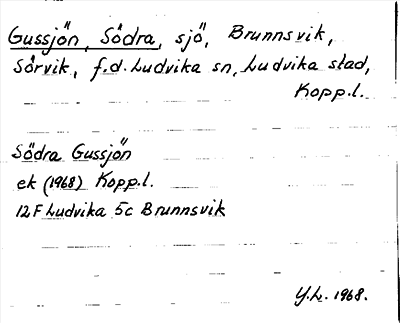 Gussjön, Södra, sjö, Brunnsvik,
Sörvik, f.d. Ludvika sn, Ludvika stad,
Kopp.l.
Södra Gussjön
ek (1968) Kopp.l.
12F Ludvika 5c Brunnsvik
Y.L. 1968.